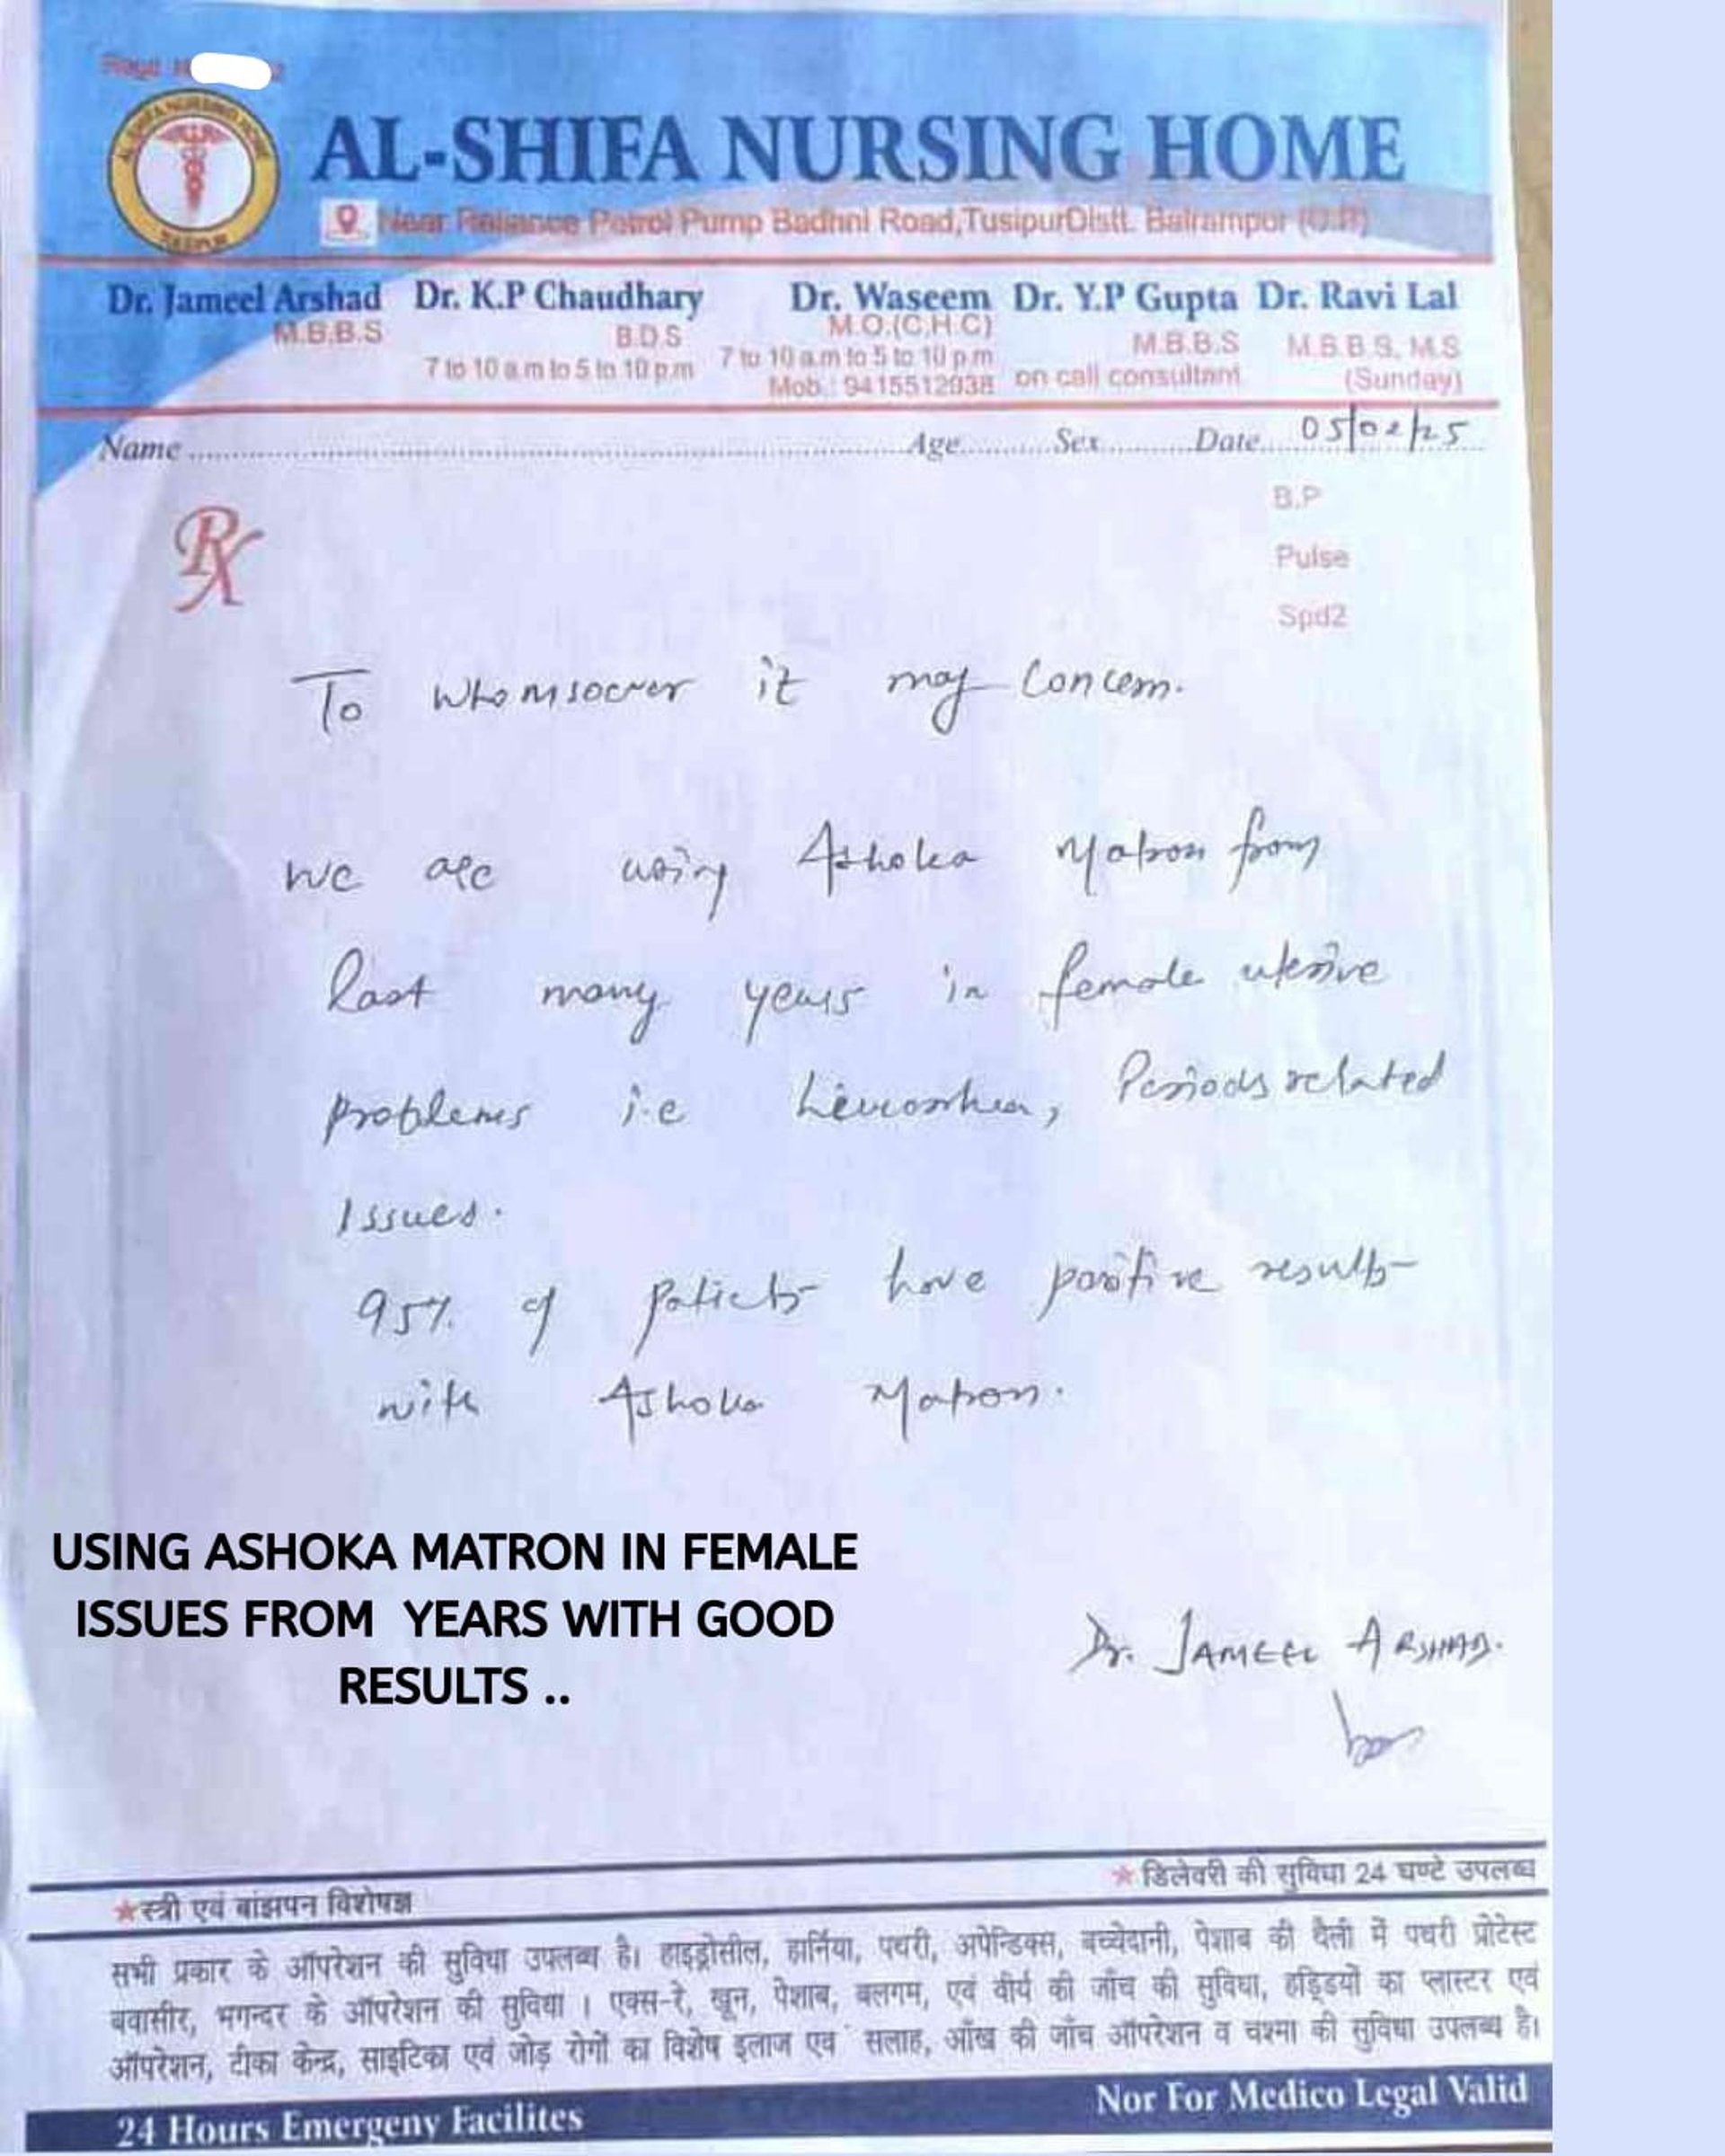 AL-SHIFA NURSING HOME
Near Reliance Petrol Pump Badhni Road,TusipurDistt. Balrampur (U.P)
Dr. Jameel Arshad Dr. K.P Chaudhary Dr. Waseem Dr. Y.P Gupta Dr. Ravi Lal
M.B.B.S B.D.S M.O.(C.H.C) M.B.B.S M.B.B.S, M.S
7 to 10 a.m to 5 to 10 p.m 7 to 10 a.m to 5 to 10 p.m on call consultant (Sunday)
Mob.: 9415512938
Name Age Sex Date 05/02/25
B.P
Pulse
Spd2
Rx
To whomsoever it may concern.
we are using Ashoka Matron from
last many years in female uterine
problems i.e Leucorrhea, Periods related
issues.
95% of patients have positive results
with Ashoka Matron.
USING ASHOKA MATRON IN FEMALE
ISSUES FROM YEARS WITH GOOD
RESULTS ..
Dr. JAMEEL ARSHAD.
★डिलेवरी की सुविधा 24 घण्टे उपलब्ध
★स्त्री एवं बांझपन विशेषज्ञ
सभी प्रकार के ऑपरेशन की सुविधा उपलब्ध है। हाइड्रोसील, हार्निया, पथरी, अपेन्डिक्स, बच्चेदानी, पेशाब की थैली में पथरी प्रोटेस्ट
बवासीर, भगन्दर के ऑपरेशन की सुविधा । एक्स-रे, खून, पेशाब, बलगम, एवं वीर्य की जाँच की सुविधा, हड्डियों का प्लास्टर एवं
ऑपरेशन, टीका केन्द्र, साइटिका एवं जोड़ रोगों का विशेष इलाज एव सलाह, आँख की जाँच ऑपरेशन व चश्मा की सुविधा उपलब्ध है।
24 Hours Emergeny Facilites Nor For Medico Legal Valid